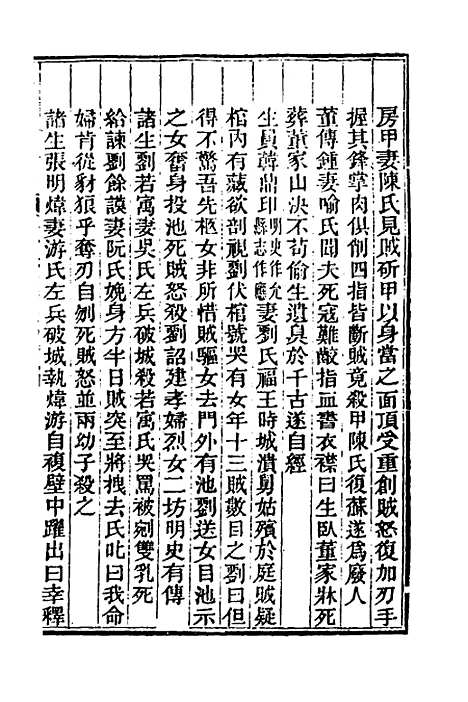 房甲妻陳氏見賊斫甲以身當之面頂受重創賊怒復加刃手
握其鋒掌肉俱創四指皆斷賊竟殺甲陳氏復蘇遂爲廢人
董傳鍾妻喻氏聞夫死寇難齧指血書衣襟曰生臥董家牀死
葬董家山決不苟偷生遺臭於千古遂自經
生員韓鼎印明史作允縣志作應妻劉氏福王時城潰舅姑殯於庭賊疑
棺內有藏欲剖視劉伏棺號哭有女年十三賊數目之劉曰但
得不驚吾先柩女非所惜賊驅女去門外有池劉送女目池示
之女奮身投池死賊怒殺劉詔建孝婦烈女二坊明史有傳
諸生劉若寓妻吳氏左兵破城殺若寓氏哭罵被剜雙乳死
給諫劉餘謨妻阮氏娩身方半日賊突至將拽去氏叱曰我命
婦肯從豺狼乎奪刃自刎死賊怒並兩幼子殺之
諸生張明煒妻游氏左兵破城執煒游自複壁中躍出曰幸釋